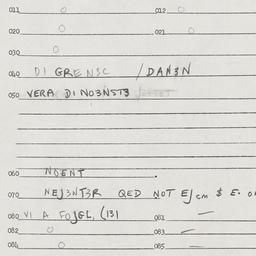 011 O 012 O
020 O 021 O
030 O
040 DI GRENSC / DAN3N
050 VERA DI NO3NST3
060 NDENT
070 NEJ3NT3R QED NOT EJ cm $ E.
080 VI A FOJGL, (131 081 —
082 O 083 —
084 O 085 —